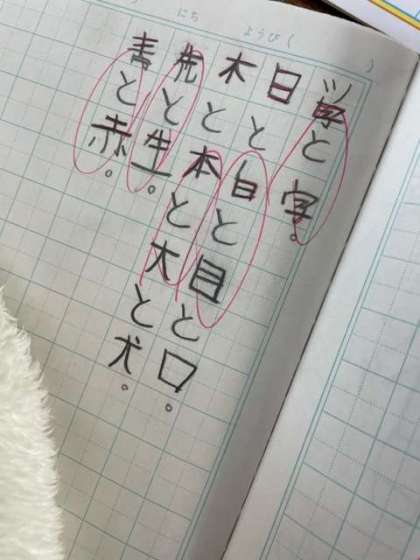 にち ようび ( )
学と字。
日と白と目と口。
木と本と大と犬。
先と生。
青と赤。